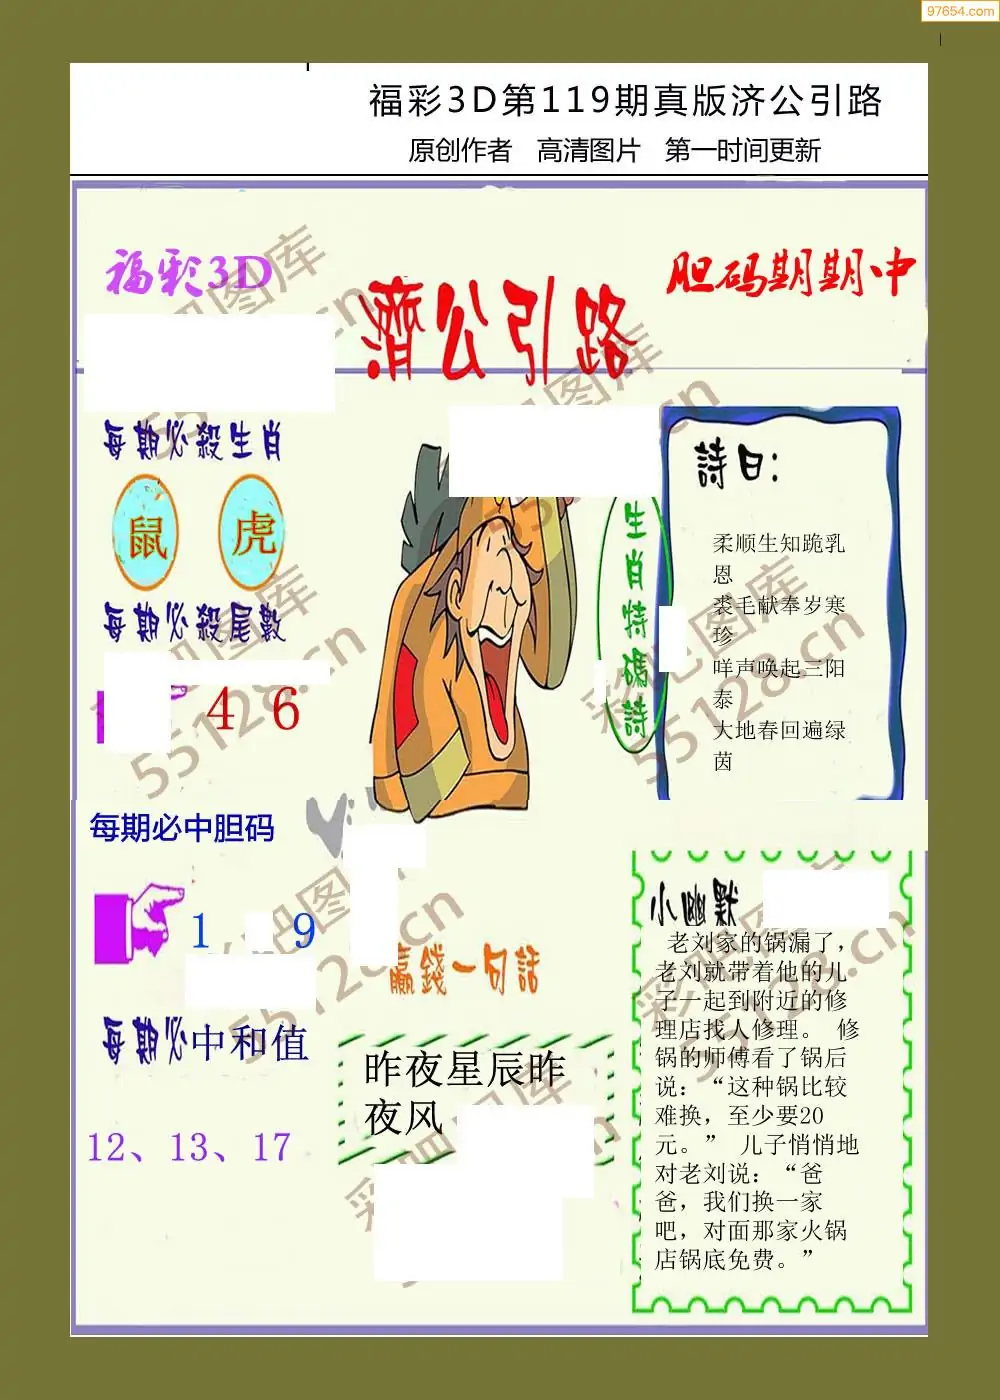 97654.com
福彩3D第119期真版济公引路
原创作者 高清图片 第一时间更新
福彩3D
濟公引路
胆码期期中
每期必殺生肖
鼠 虎
每期必殺尾數
4 6
每期必中胆码
1 9
每期必中和值
12、13、17
生肖特碼詩
詩曰:
柔顺生知跪乳
恩
裘毛献奉岁寒
珍
咩声唤起三阳
泰
大地春回遍绿
茵
贏錢一句話
昨夜星辰昨
夜风
小幽默
老刘家的锅漏了，
老刘就带着他的儿
子一起到附近的修
理店找人修理。 修
锅的师傅看了锅后
说：“这种锅比较
难换，至少要20
元。” 儿子悄悄地
对老刘说：“爸
爸，我们换一家
吧，对面那家火锅
店锅底免费。”
彩吧图库
55128.cn
彩吧图库
55128.cn
彩吧图库
55128.cn